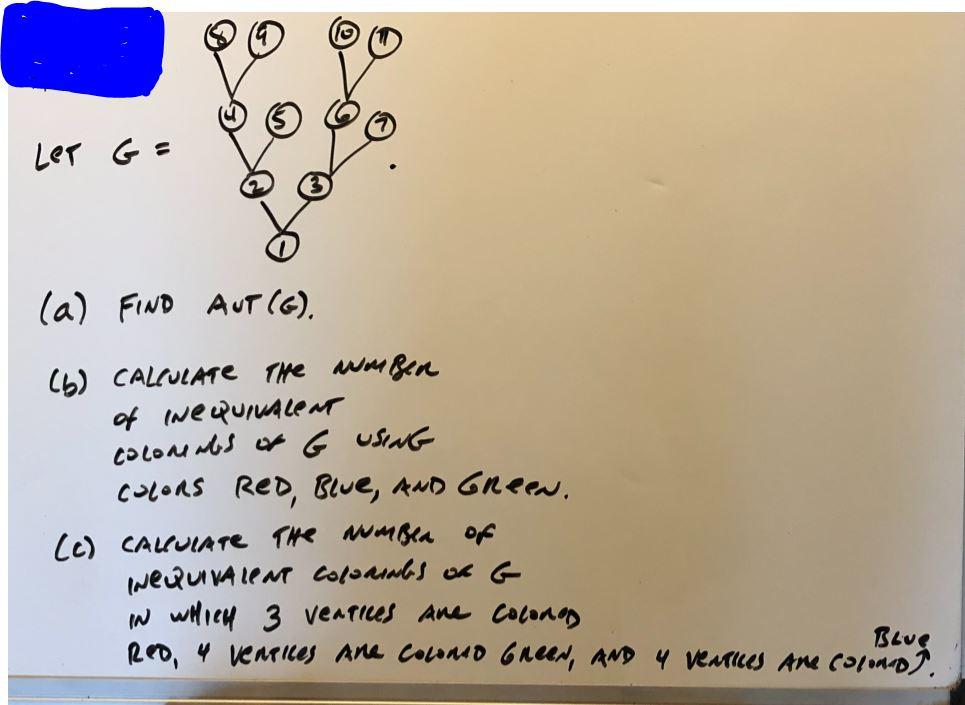 8 9 10 11
4 5 6 7
LET G =
2 3
1
(a) FIND AUT(G).
(b) CALCULATE THE NUMBER
OF INEQUIVALENT
COLORINGS OF G USING
COLORS RED, BLUE, AND GREEN.
(c) CALCULATE THE NUMBER OF
INEQUIVALENT COLORINGS OF G
IN WHICH 3 VERTICES ARE COLORED
RED, 4 VERTICES ARE COLORED GREEN, AND 4 VERTICES ARE COLORED BLUE.